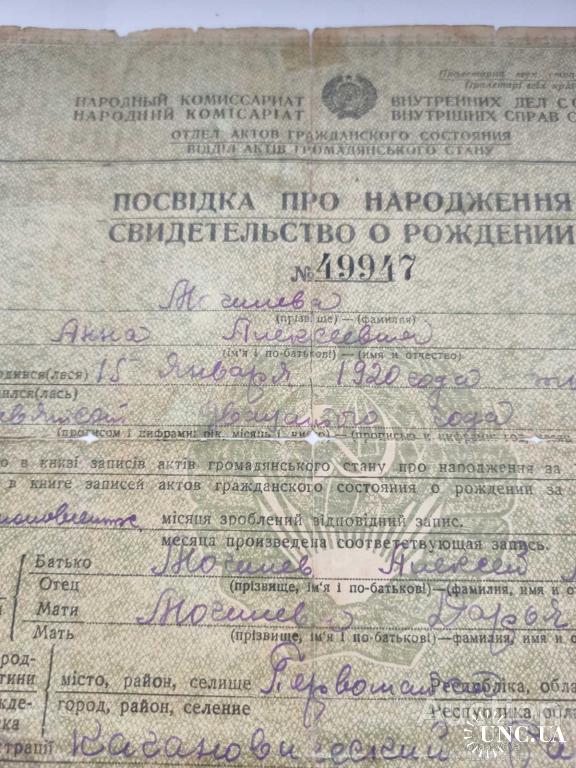 Пролетарии всех стра
Пролетарі всіх краї
НАРОДНЫЙ КОМИССАРИАТ ВНУТРЕННИХ ДЕЛ С
НАРОДНИЙ КОМІСАРІАТ ВНУТРІШНІХ СПРАВ С
ОТДЕЛ АКТОВ ГРАЖДАНСКОГО СОСТОЯНИЯ
ВІДДІЛ АКТІВ ГРОМАДЯНСЬКОГО СТАНУ
ПОСВІДКА ПРО НАРОДЖЕННЯ
СВИДЕТЕЛЬСТВО О РОЖДЕНИИ
№ 49947
Могилева
(прізвище) — (фамилия)
Анна Алексеевна
(ім'я і по-батькові) — (имя и отчество)
одився(лася) 15 января 1920 года
ился(лась)
двадцатого года
(прописом і цифрами рік, місяць і число) — (прописью и цифрами год
о в книзі записів актів громадянського стану про народження за
в книге записей актов гражданского состояния о рождении за
місяця зроблений відповідний запис.
месяца произведена соответствующая запись.
Батько Могилев Алексей
Отец (прізвище, ім'я і по-батькові) — (фамилия, имя и от
Мати Могилева Дарья
Мать (прізвище, ім'я і по-батькові) — фамилия, имя и о
род-
тини місто, район, селище Первомайск Республіка, обла
жде- город, район, селение Республика, обла
ка
трації Кагановический
UNC.UA